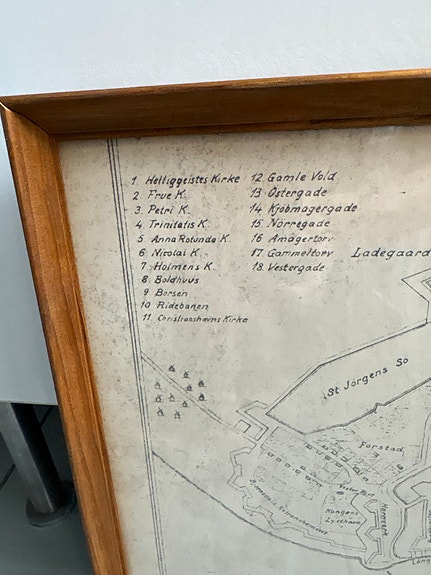 1 Helliggeistes Kirke
2. Frue K.
3. Petri K.
4 Trinitatis K
5 Anna Rotunda K.
6 Nicolai K.
7 Holmens K.
8 Boldhuus
9 Borsen
10 Ridebanen
11 Christianshavns Kirke
12 Gamle Vold
13 Ostergade
14 Kjobmagergade
15 Nörregade
16 Amagertorv
17 Gammeltorv
18. Vestergade
Ladegaard
St Jörgens So
Forstad
Vester Port
Kongens
Lysthave